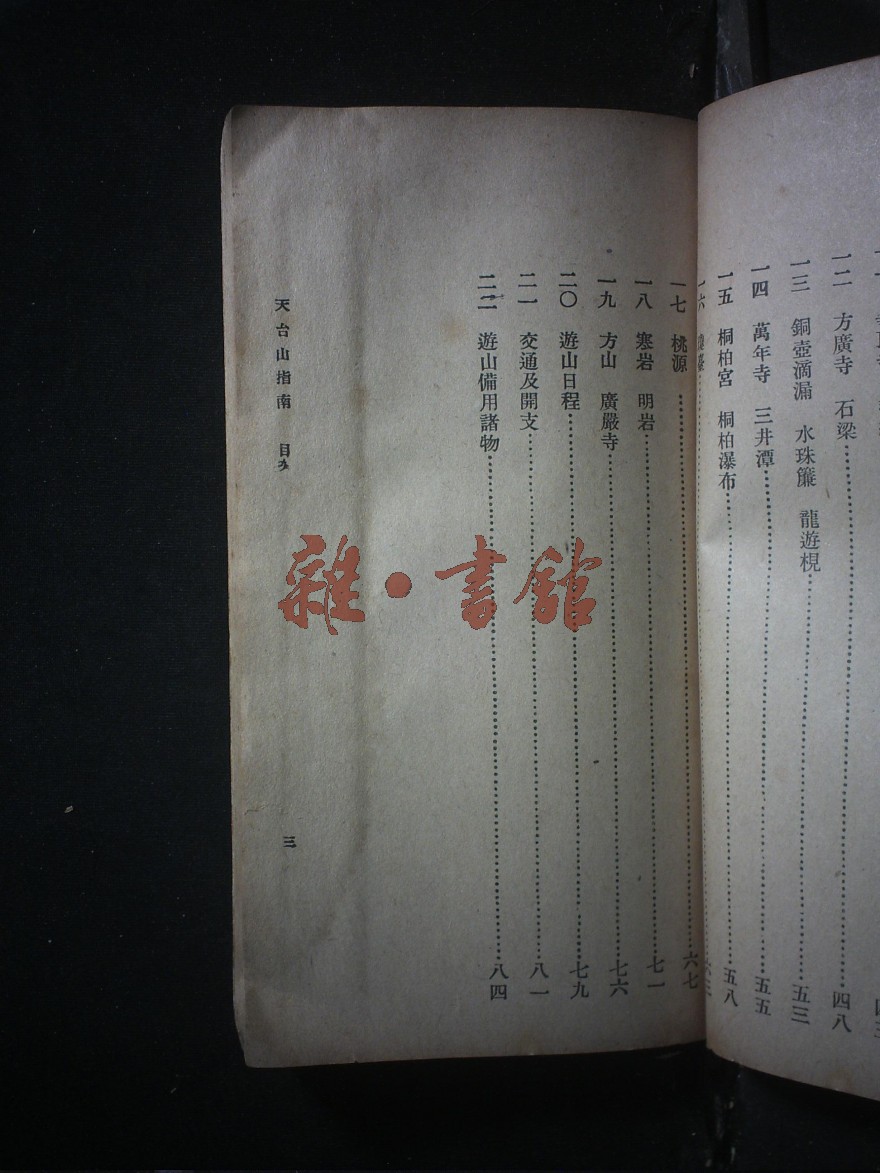 一二 方廣寺 石梁……四八
一三 銅壺滴漏 水珠簾 龍遊梘……五三
一四 萬年寺 三井潭……五五
一五 桐柏宮 桐柏瀑布……五八
一六……六三
一七 桃源……六七
一八 寒岩 明岩……七一
一九 方山 廣嚴寺……七六
二〇 遊山日程……七九
二一 交通及開支……八一
二二 遊山備用諸物……八四
天台山指南 目次
三
雜·書館